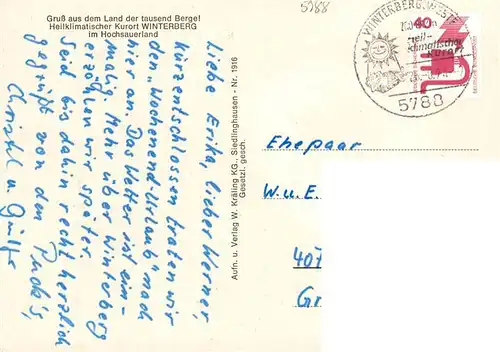 5788
Gruß aus dem Land der tausend Berge!
Heilklimatischer Kurort WINTERBERG
im Hochsauerland
Liebe Erika, lieber Werner,
kurzentschlossen traten wir
den „Wochenend-Urlaub" nach
hier an. Das Wetter ist ein-
malig. Mehr über Winterberg
erzählen wir später.
Seid bis dahin recht herzlich
gegrüßt von den
Christel u. Günter
Aufn. u. Verlag W. Kräling KG., Siedlinghausen - Nr. 1916
Gesetzl. gesch.
WINTERBERG, WESTF
heil-
klimatischer
Kurort
5788
40
Ehepaar
W. u. E.
401
Gr